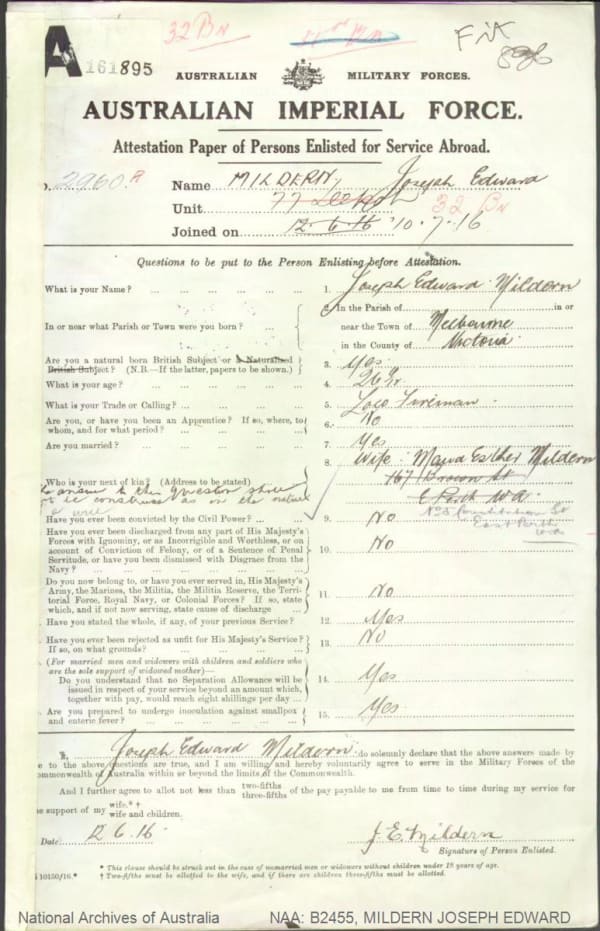 A
161895
32 Bn
Fit
AUSTRALIAN MILITARY FORCES.
AUSTRALIAN IMPERIAL FORCE.
Attestation Paper of Persons Enlisted for Service Abroad.
o. 2960 A Name MILDERN, Joseph Edward
Unit 77 32 Bn
Joined on 12.6.16 10.7.16
Questions to be put to the Person Enlisting before Attestation.
What is your Name? ... 1. Joseph Edward Mildern
In or near what Parish or Town were you born? ... 2. In the Parish of in or
near the Town of Melbourne
in the County of Victoria
Are you a natural born British Subject or a Naturalised
British Subject? (N.B.—If the latter, papers to be shown.) 3. Yes
What is your age? ... 4. 26 Yr.
What is your Trade or Calling? ... 5. Loco Fireman
Are you, or have you been an Apprentice? If so, where, to
whom, and for what period? ... 6. No
Are you married? ... 7. Yes
8. Wife Esther Mildern
167 Brown St
E. Perth W.A.
Who is your next of kin? (Address to be stated)
answer to this question
construed as in the nature
will
Constitution St
East Perth
WA
Have you ever been convicted by the Civil Power? ... 9. No
Have you ever been discharged from any part of His Majesty's
Forces with Ignominy, or as Incorrigible and Worthless, or on
account of Conviction of Felony, or of a Sentence of Penal
Servitude, or have you been dismissed with Disgrace from the
Navy? ... 10. No
Do you now belong to, or have you ever served in, His Majesty's
Army, the Marines, the Militia, the Militia Reserve, the Terri-
torial Force, Royal Navy, or Colonial Forces? If so, state
which, and if not now serving, state cause of discharge 11. No
Have you stated the whole, if any, of your previous Service? 12. Yes
Have you ever been rejected as unfit for His Majesty's Service?
If so, on what grounds? ... 13. No
(For married men and widowers with children and soldiers who
are the sole support of widowed mother)—
Do you understand that no Separation Allowance will be
issued in respect of your service beyond an amount which,
together with pay, would reach eight shillings per day ... 14. Yes
Are you prepared to undergo inoculation against smallpox
and enteric fever? ... 15. Yes
I, Joseph Edward Mildern do solemnly declare that the above answers made by
e to the above questions are true, and I am willing and hereby voluntarily agree to serve in the Military Forces of the
ommonwealth of Australia within or beyond the limits of the Commonwealth.
And I further agree to allot not less than two-fifths three-fifths of the pay payable to me from time to time during my service for
e support of my wife.*† wife and children.
Date 12.6.16 J. E. Mildern
Signature of Person Enlisted.
* This clause should be struck out in the case of unmarried men or widowers without children under 18 years of age.
10130/16.* † Two-fifths must be allotted to the wife, and if there are children three-fifths must be allotted.
National Archives of Australia NAA: B2455, MILDERN JOSEPH EDWARD